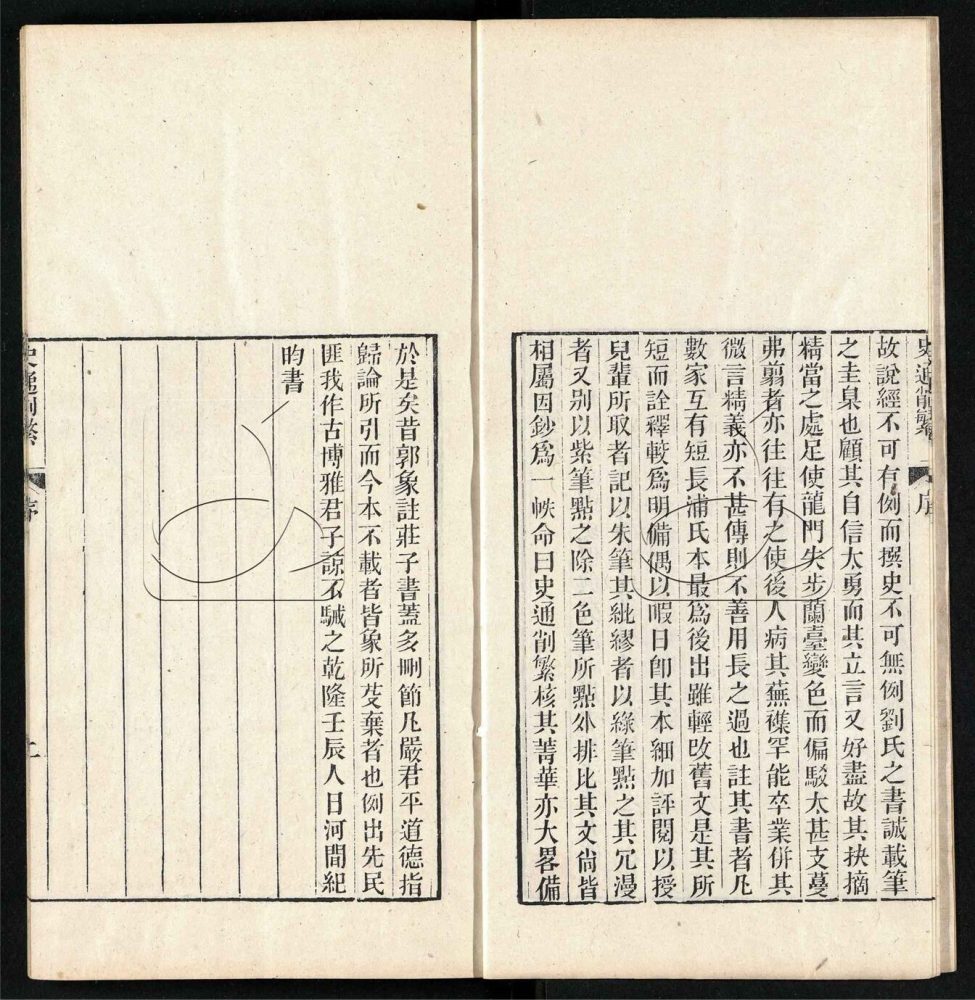 史通削繁 序
故說經不可有例而撰史不可無例劉氏之書誠載筆
之圭臬也顧其自信太勇而其立言又好盡故其抉摘
精當之處足使龍門失步蘭臺變色而偏駁太甚支蔓
弗翦者亦往往有之使後人病其蕪襍罕能卒業併其
微言精義亦不甚傳則不善用長之過也註其書者凡
數家互有短長浦氏本最爲後出雖輕改舊文是其所
短而詮釋較爲明備偶以暇日卽其本細加評閱以授
兒輩所取者記以朱筆其紕繆者以綠筆點之其冗漫
者又別以紫筆點之除二色筆所點外排比其文尙皆
相屬因鈔爲一帙命曰史通削繁核其菁華亦大畧備
於是矣昔郭象註莊子書蓋多刪節凡嚴君平道德指
歸論所引而今本不載者皆象所芟棄者也例出先民
匪我作古博雅君子諒不駴之乾隆壬辰人日河間紀
昀書
史通削繁 序